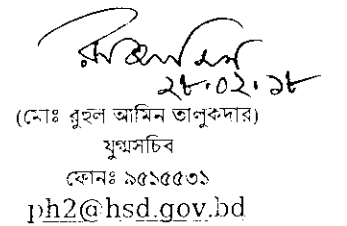 রুহুল আমিন
২৮.০২.১৮
(মোঃ রুহুল আমিন তালুকদার)
যুগ্মসচিব
ফোনঃ ৯৫১৫৫৩১
ph2@hsd.gov.bd